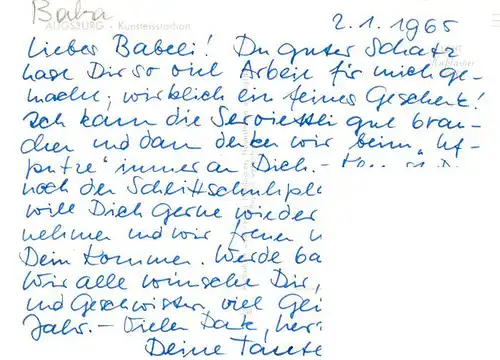 Baba
AUGSBURG - Kunsteisstadion
2. 1. 1965
Lieber Babeli! Du guter Schatz
hast Dir so viel Arbeit für mich ge-
macht; wirklich ein feines Geschenk!
Ich kann die Serviettli gut brau-
chen und dann denken wir beim "Uf-
putze" immer an Dich. -
noch der Schlittschuhpl
will Dich gerne wieder
nehmen und wir freuen
Dein Kommen. Werde ba
Wir alle wünsche Dir,
und Geschwister, viel
Jahr. - Vielen Dank, her
Deine Tante